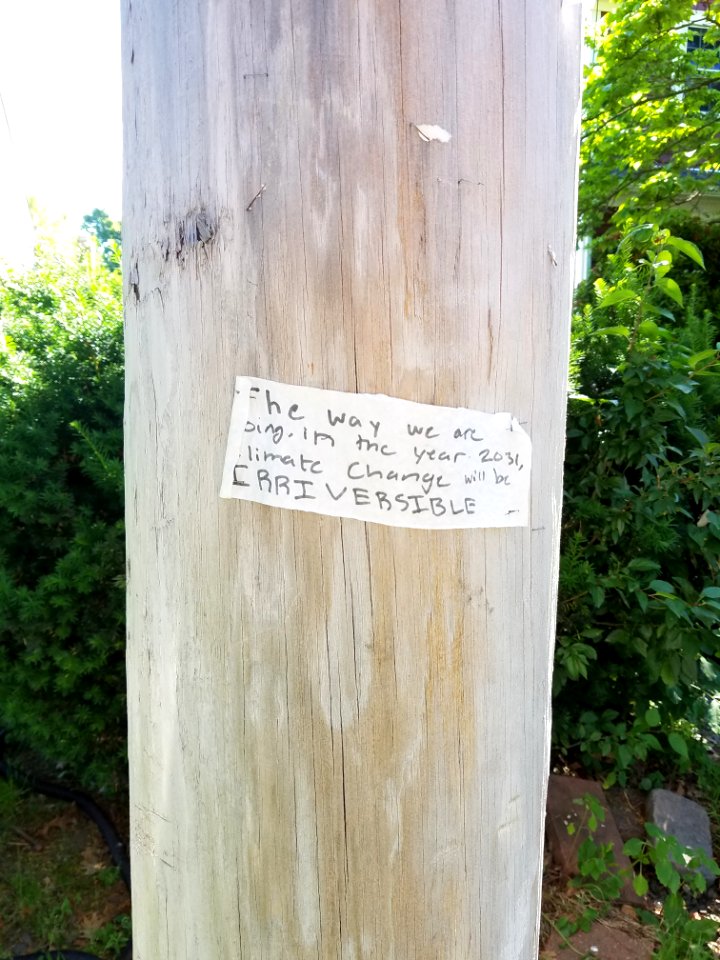 The way we are
oing. In the year 2031,
limate change will be
IRRIVERSIBLE